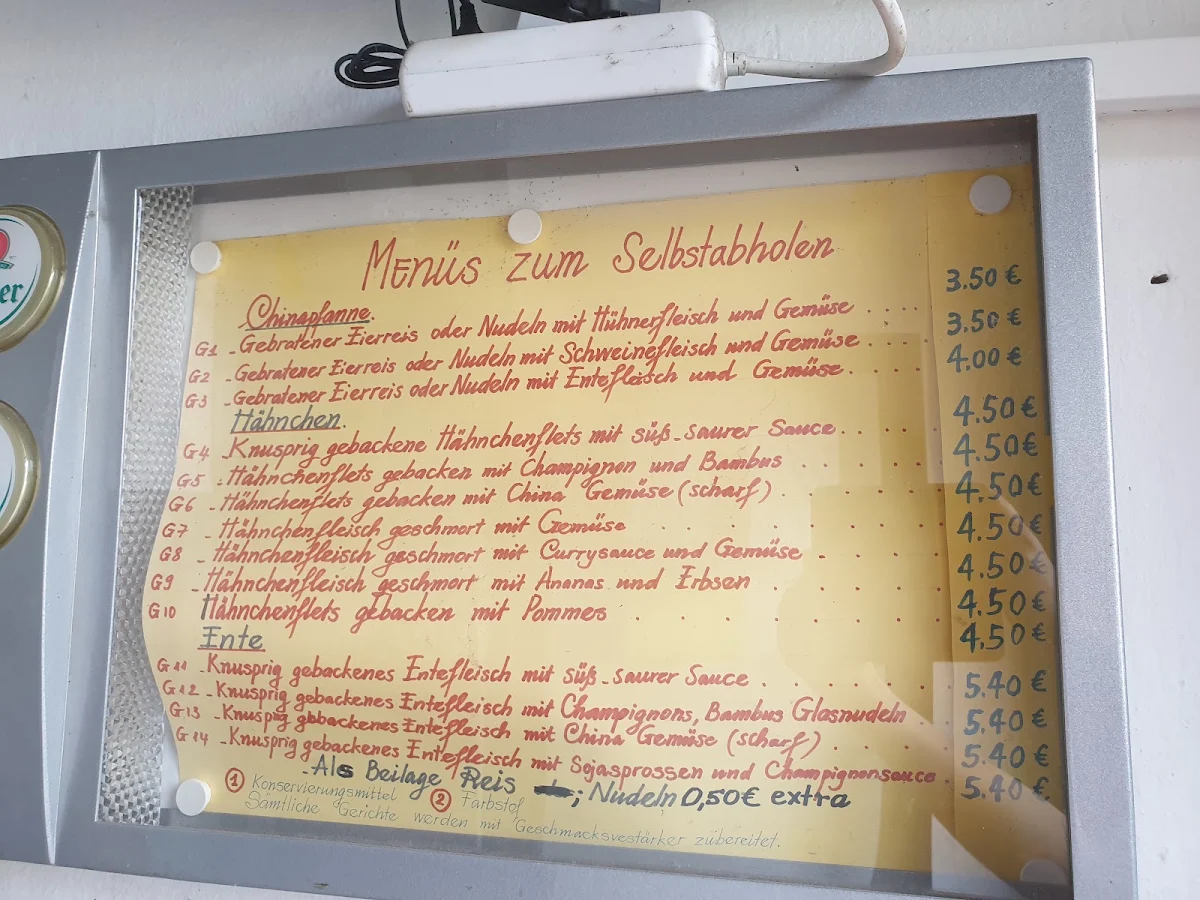 Menüs zum Selbstabholen
Chinapfanne.
G1 - Gebratener Eierreis oder Nudeln mit Hühnerfleisch und Gemüse .... 3.50 €
G2 - Gebratener Eierreis oder Nudeln mit Schweinefleisch und Gemüse .... 3.50 €
G3 - Gebratener Eierreis oder Nudeln mit Entefleisch und Gemüse .... 4.00 €
Hähnchen.
G4 - Knusprig gebackene Hähnchenflets mit süß-saurer Sauce .... 4.50 €
G5 - Hähnchenflets gebacken mit Champignon und Bambus .... 4.50 €
G6 - Hähnchenflets gebacken mit China Gemüse (scharf) .... 4.50 €
G7 - Hähnchenfleisch geschmort mit Gemüse .... 4.50 €
G8 - Hähnchenfleisch geschmort mit Currysauce und Gemüse .... 4.50 €
G9 - Hähnchenfleisch geschmort mit Ananas und Erbsen .... 4.50 €
G10 Hähnchenflets gebacken mit Pommes .... 4.50 €
Ente
G11 - Knusprig gebackenes Entefleisch mit süß-saurer Sauce .... 5.40 €
G12 - Knusprig gebackenes Entefleisch mit Champignons, Bambus Glasnudeln .. 5.40 €
G13 - Knusprig gebackenes Entefleisch mit China Gemüse (scharf) .... 5.40 €
G14 - Knusprig gebackenes Entefleisch mit Sojasprossen und Champignonsauce .. 5.40 €
- Als Beilage Reis ; Nudeln 0,50€ extra
1 Konservierungsmittel 2 Farbstof
Sämtliche Gerichte werden mit Geschmacksvestärker zübereitet.
er